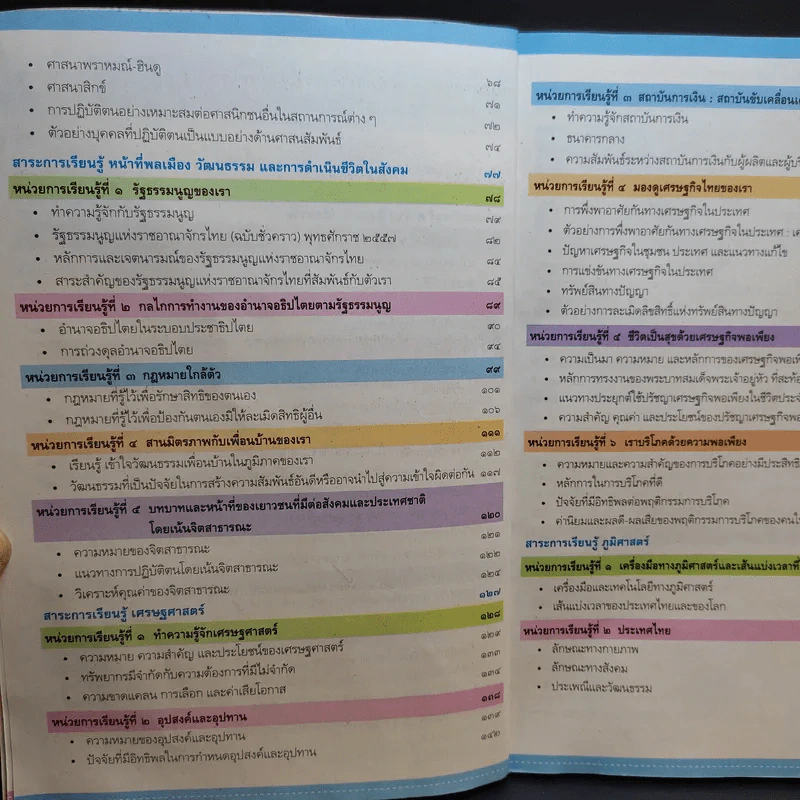 • ศาสนาพราหมณ์-ฮินดู ๖๘
• ศาสนาสิกข์ ๗๑
• การปฏิบัติตนอย่างเหมาะสมต่อศาสนิกชนอื่นในสถานการณ์ต่าง ๆ ๗๒
• ตัวอย่างบุคคลที่ปฏิบัติตนเป็นแบบอย่างด้านศาสนสัมพันธ์ ๗๔
สาระการเรียนรู้ หน้าที่พลเมือง วัฒนธรรม และการดำเนินชีวิตในสังคม ๗๗
หน่วยการเรียนรู้ที่ ๑ รัฐธรรมนูญของเรา ๗๘
• ทำความรู้จักกับรัฐธรรมนูญ ๗๙
• รัฐธรรมนูญแห่งราชอาณาจักรไทย (ฉบับชั่วคราว) พุทธศักราช ๒๕๕๗ ๘๒
• หลักการและเจตนารมณ์ของรัฐธรรมนูญแห่งราชอาณาจักรไทย ๘๔
• สาระสำคัญของรัฐธรรมนูญแห่งราชอาณาจักรไทยที่สัมพันธ์กับตัวเรา ๘๕
หน่วยการเรียนรู้ที่ ๒ กลไกการทำงานของอำนาจอธิปไตยตามรัฐธรรมนูญ ๘๙
• อำนาจอธิปไตยในระบอบประชาธิปไตย ๙๐
• การถ่วงดุลอำนาจอธิปไตย ๙๔
หน่วยการเรียนรู้ที่ ๓ กฎหมายใกล้ตัว ๙๙
• กฎหมายที่รู้ไว้เพื่อรักษาสิทธิของตนเอง ๑๐๑
• กฎหมายที่รู้ไว้เพื่อป้องกันตนเองมิให้ละเมิดสิทธิผู้อื่น ๑๐๖
หน่วยการเรียนรู้ที่ ๔ สานมิตรภาพกับเพื่อนบ้านของเรา ๑๑๑
• เรียนรู้ เข้าใจวัฒนธรรมเพื่อนบ้านในภูมิภาคของเรา ๑๑๒
• วัฒนธรรมที่เป็นปัจจัยในการสร้างความสัมพันธ์อันดีหรืออาจนำไปสู่ความเข้าใจผิดต่อกัน ๑๑๗
หน่วยการเรียนรู้ที่ ๕ บทบาทและหน้าที่ของเยาวชนที่มีต่อสังคมและประเทศชาติ
โดยเน้นจิตสาธารณะ ๑๒๐
• ความหมายของจิตสาธารณะ ๑๒๑
• แนวทางการปฏิบัติตนโดยเน้นจิตสาธารณะ ๑๒๒
• วิเคราะห์คุณค่าของจิตสาธารณะ ๑๒๔
สาระการเรียนรู้ เศรษฐศาสตร์ ๑๒๗
หน่วยการเรียนรู้ที่ ๑ ทำความรู้จักเศรษฐศาสตร์ ๑๒๘
• ความหมาย ความสำคัญ และประโยชน์ของเศรษฐศาสตร์ ๑๒๙
• ทรัพยากรมีจำกัดกับความต้องการที่มีไม่จำกัด ๑๓๓
• ความขาดแคลน การเลือก และค่าเสียโอกาส ๑๓๔
หน่วยการเรียนรู้ที่ ๒ อุปสงค์และอุปทาน ๑๓๘
• ความหมายของอุปสงค์และอุปทาน ๑๓๙
• ปัจจัยที่มีอิทธิพลในการกำหนดอุปสงค์และอุปทาน ๑๔๒
หน่วยการเรียนรู้ที่ ๓ สถาบันการเงิน : สถาบันขับเคลื่อน
• ทำความรู้จักสถาบันการเงิน
• ธนาคารกลาง
• ความสัมพันธ์ระหว่างสถาบันการเงินกับผู้ผลิตและ
หน่วยการเรียนรู้ที่ ๔ มองดูเศรษฐกิจไทยของเรา
• การพึ่งพาอาศัยกันทางเศรษฐกิจในประเทศ
• ตัวอย่างการพึ่งพาอาศัยกันทางเศรษฐกิจในประเทศ :
• ปัญหาเศรษฐกิจในชุมชน ประเทศ และแนวทางแก้ไข
• การแข่งขันทางเศรษฐกิจในประเทศ
• ทรัพย์สินทางปัญญา
• ตัวอย่างการละเมิดลิขสิทธิ์แห่งทรัพย์สินทางปัญญา
หน่วยการเรียนรู้ที่ ๕ ชีวิตเป็นสุขด้วยเศรษฐกิจพอเพียง
• ความเป็นมา ความหมาย และหลักการของเศรษฐกิจ
• หลักการทรงงานของพระบาทสมเด็จพระเจ้าอยู่หัว
• แนวทางประยุกต์ใช้ปรัชญาเศรษฐกิจพอเพียงในชีวิต
• ความสำคัญ คุณค่า และประโยชน์ของปรัชญาเศรษฐกิจ
หน่วยการเรียนรู้ที่ ๖ เราบริโภคด้วยความพอเพียง
• ความหมายและความสำคัญของการบริโภคอย่างมี
• หลักการในการบริโภคที่ดี
• ปัจจัยที่มีอิทธิพลต่อพฤติกรรมการบริโภค
• ค่านิยมและผลดี-ผลเสียของพฤติกรรมการบริโภคของคน
สาระการเรียนรู้ ภูมิศาสตร์
หน่วยการเรียนรู้ที่ ๑ เครื่องมือทางภูมิศาสตร์และเส้นแบ่งเวลา
• เครื่องมือและเทคโนโลยีทางภูมิศาสตร์
• เส้นแบ่งเวลาของประเทศไทยและของโลก
หน่วยการเรียนรู้ที่ ๒ ประเทศไทย
• ลักษณะทางกายภาพ
• ลักษณะทางสังคม
• ประเพณีและวัฒนธรรม